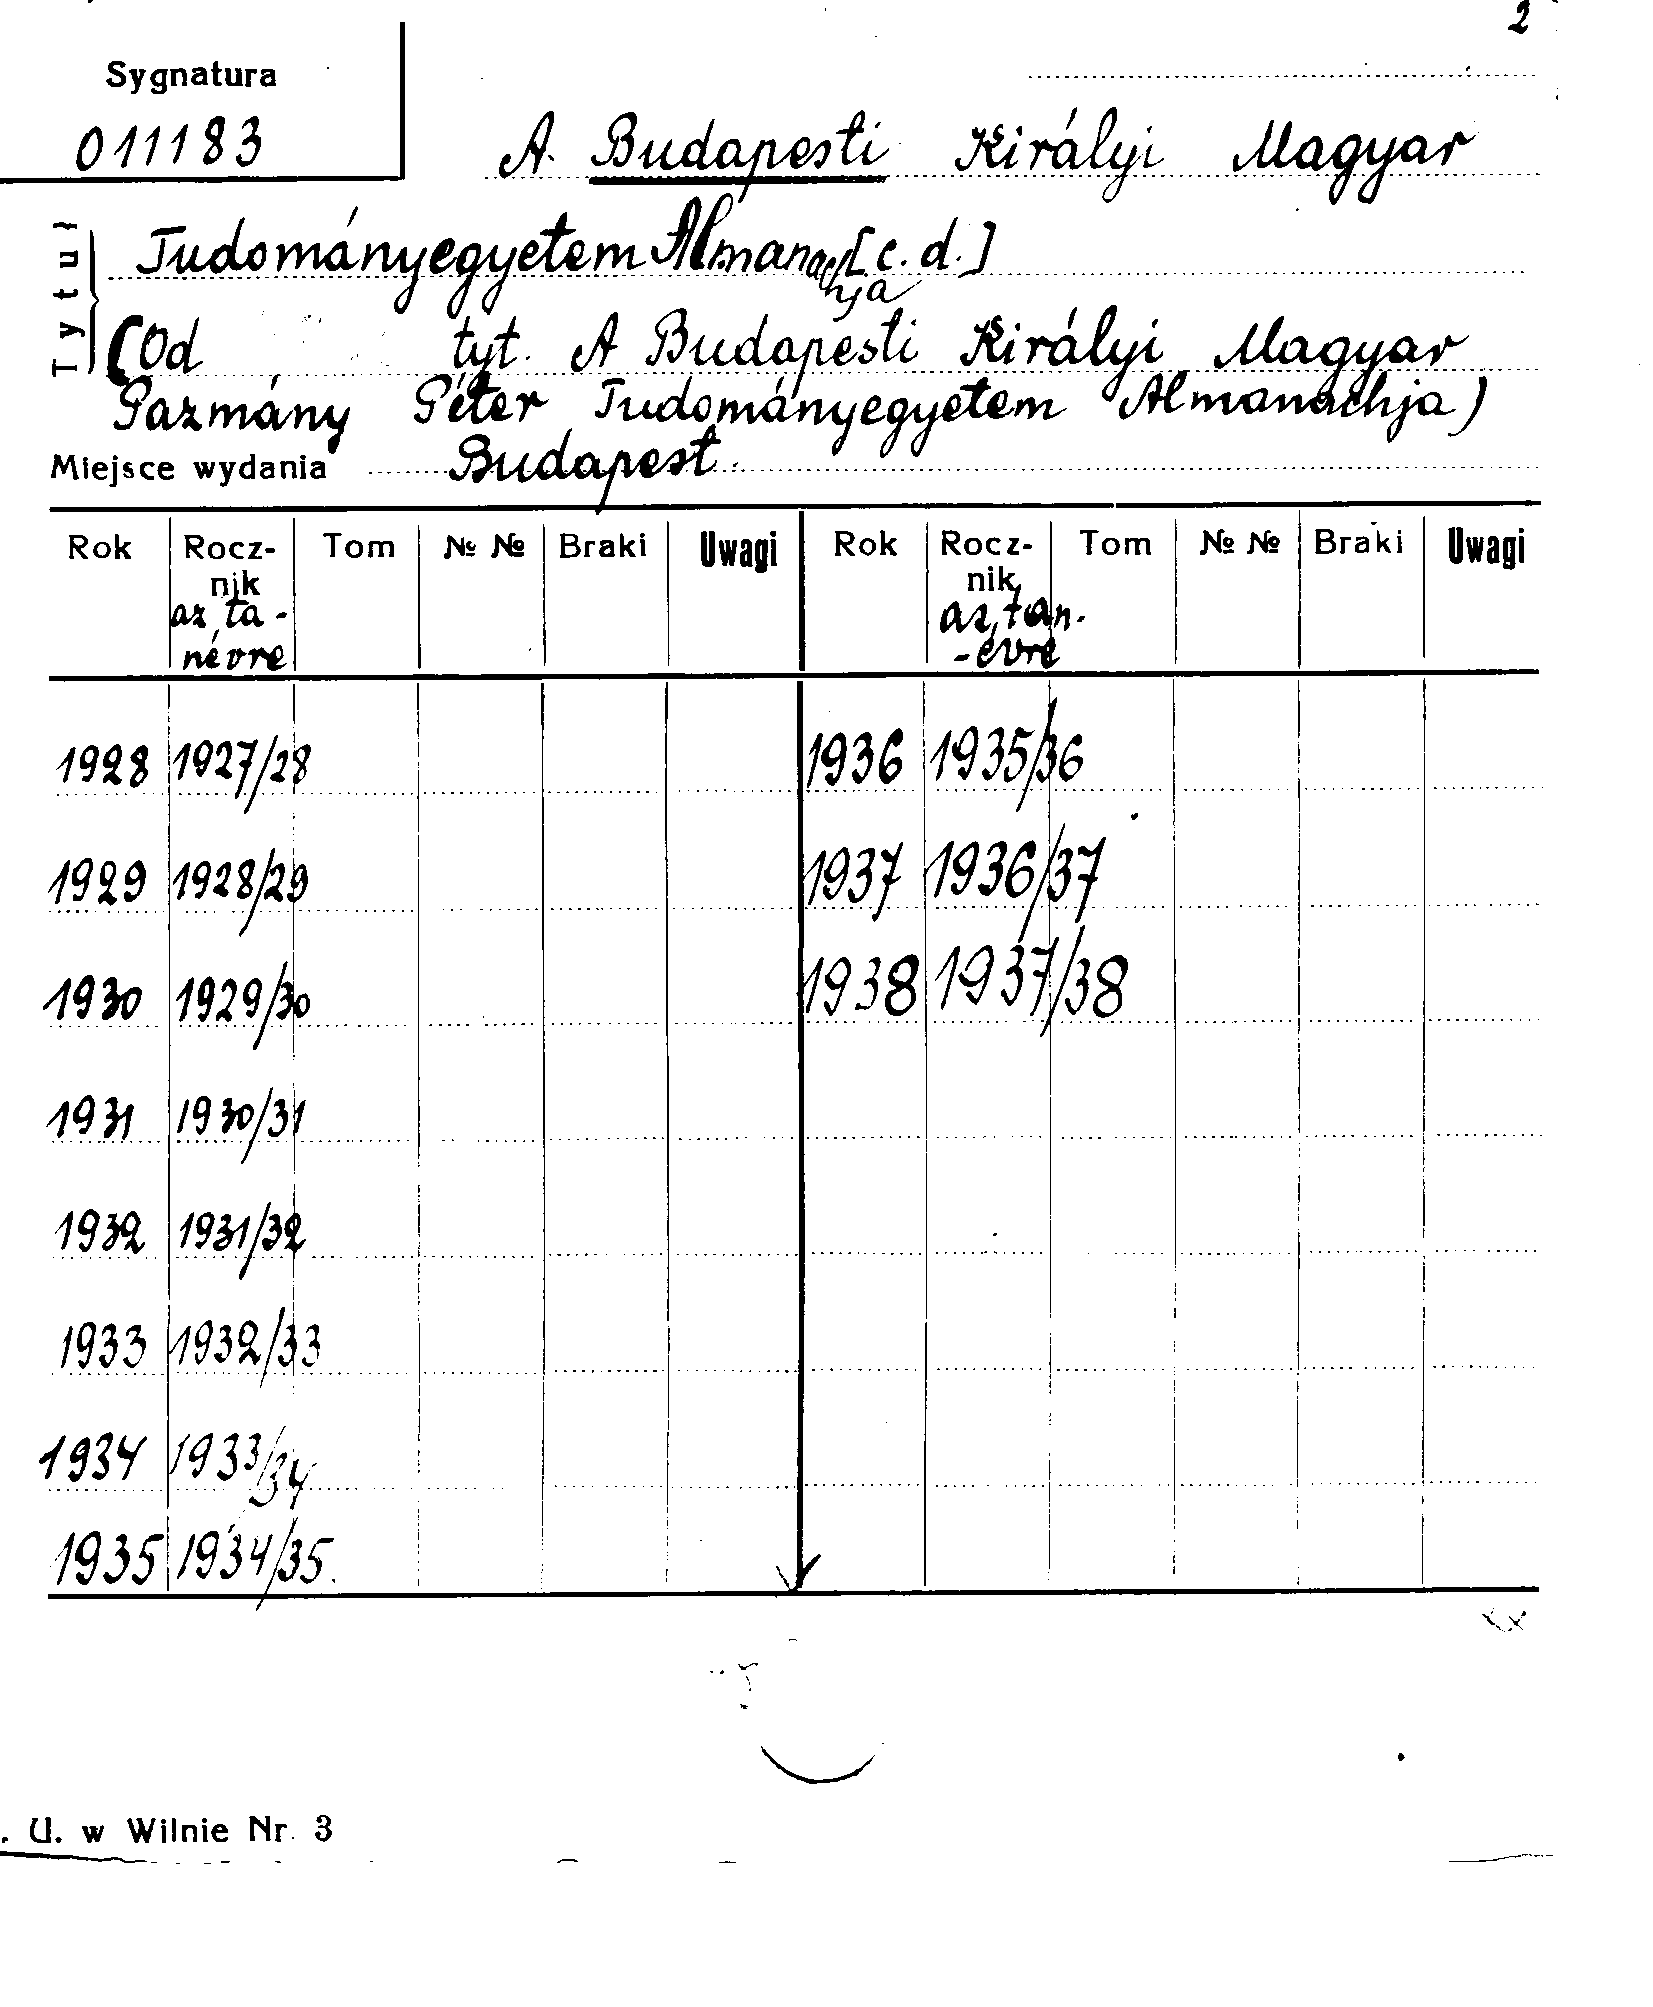 2
Sygnatura
011183
A. Budapesti Királyi Magyar
Tytuł
Tudományegyetem Almanachja [c. d.]
(Od tyt. A Budapesti Királyi Magyar
Pazmány Péter Tudományegyetem Almanachja)
Miejsce wydania Budapest.
Rok Rocz- Tom № № Braki Uwagi Rok Rocz- Tom № № Braki Uwagi
nik nik
az ta- az tan-
névre -évre
1928 1927/28 1936 1935/36
1929 1928/29 1937 1936/37
1930 1929/30 1938 1937/38
1931 1930/31
1932 1931/32
1933 1932/33
1934 1933/34
1935 1934/35.
. U. w Wilnie Nr. 3